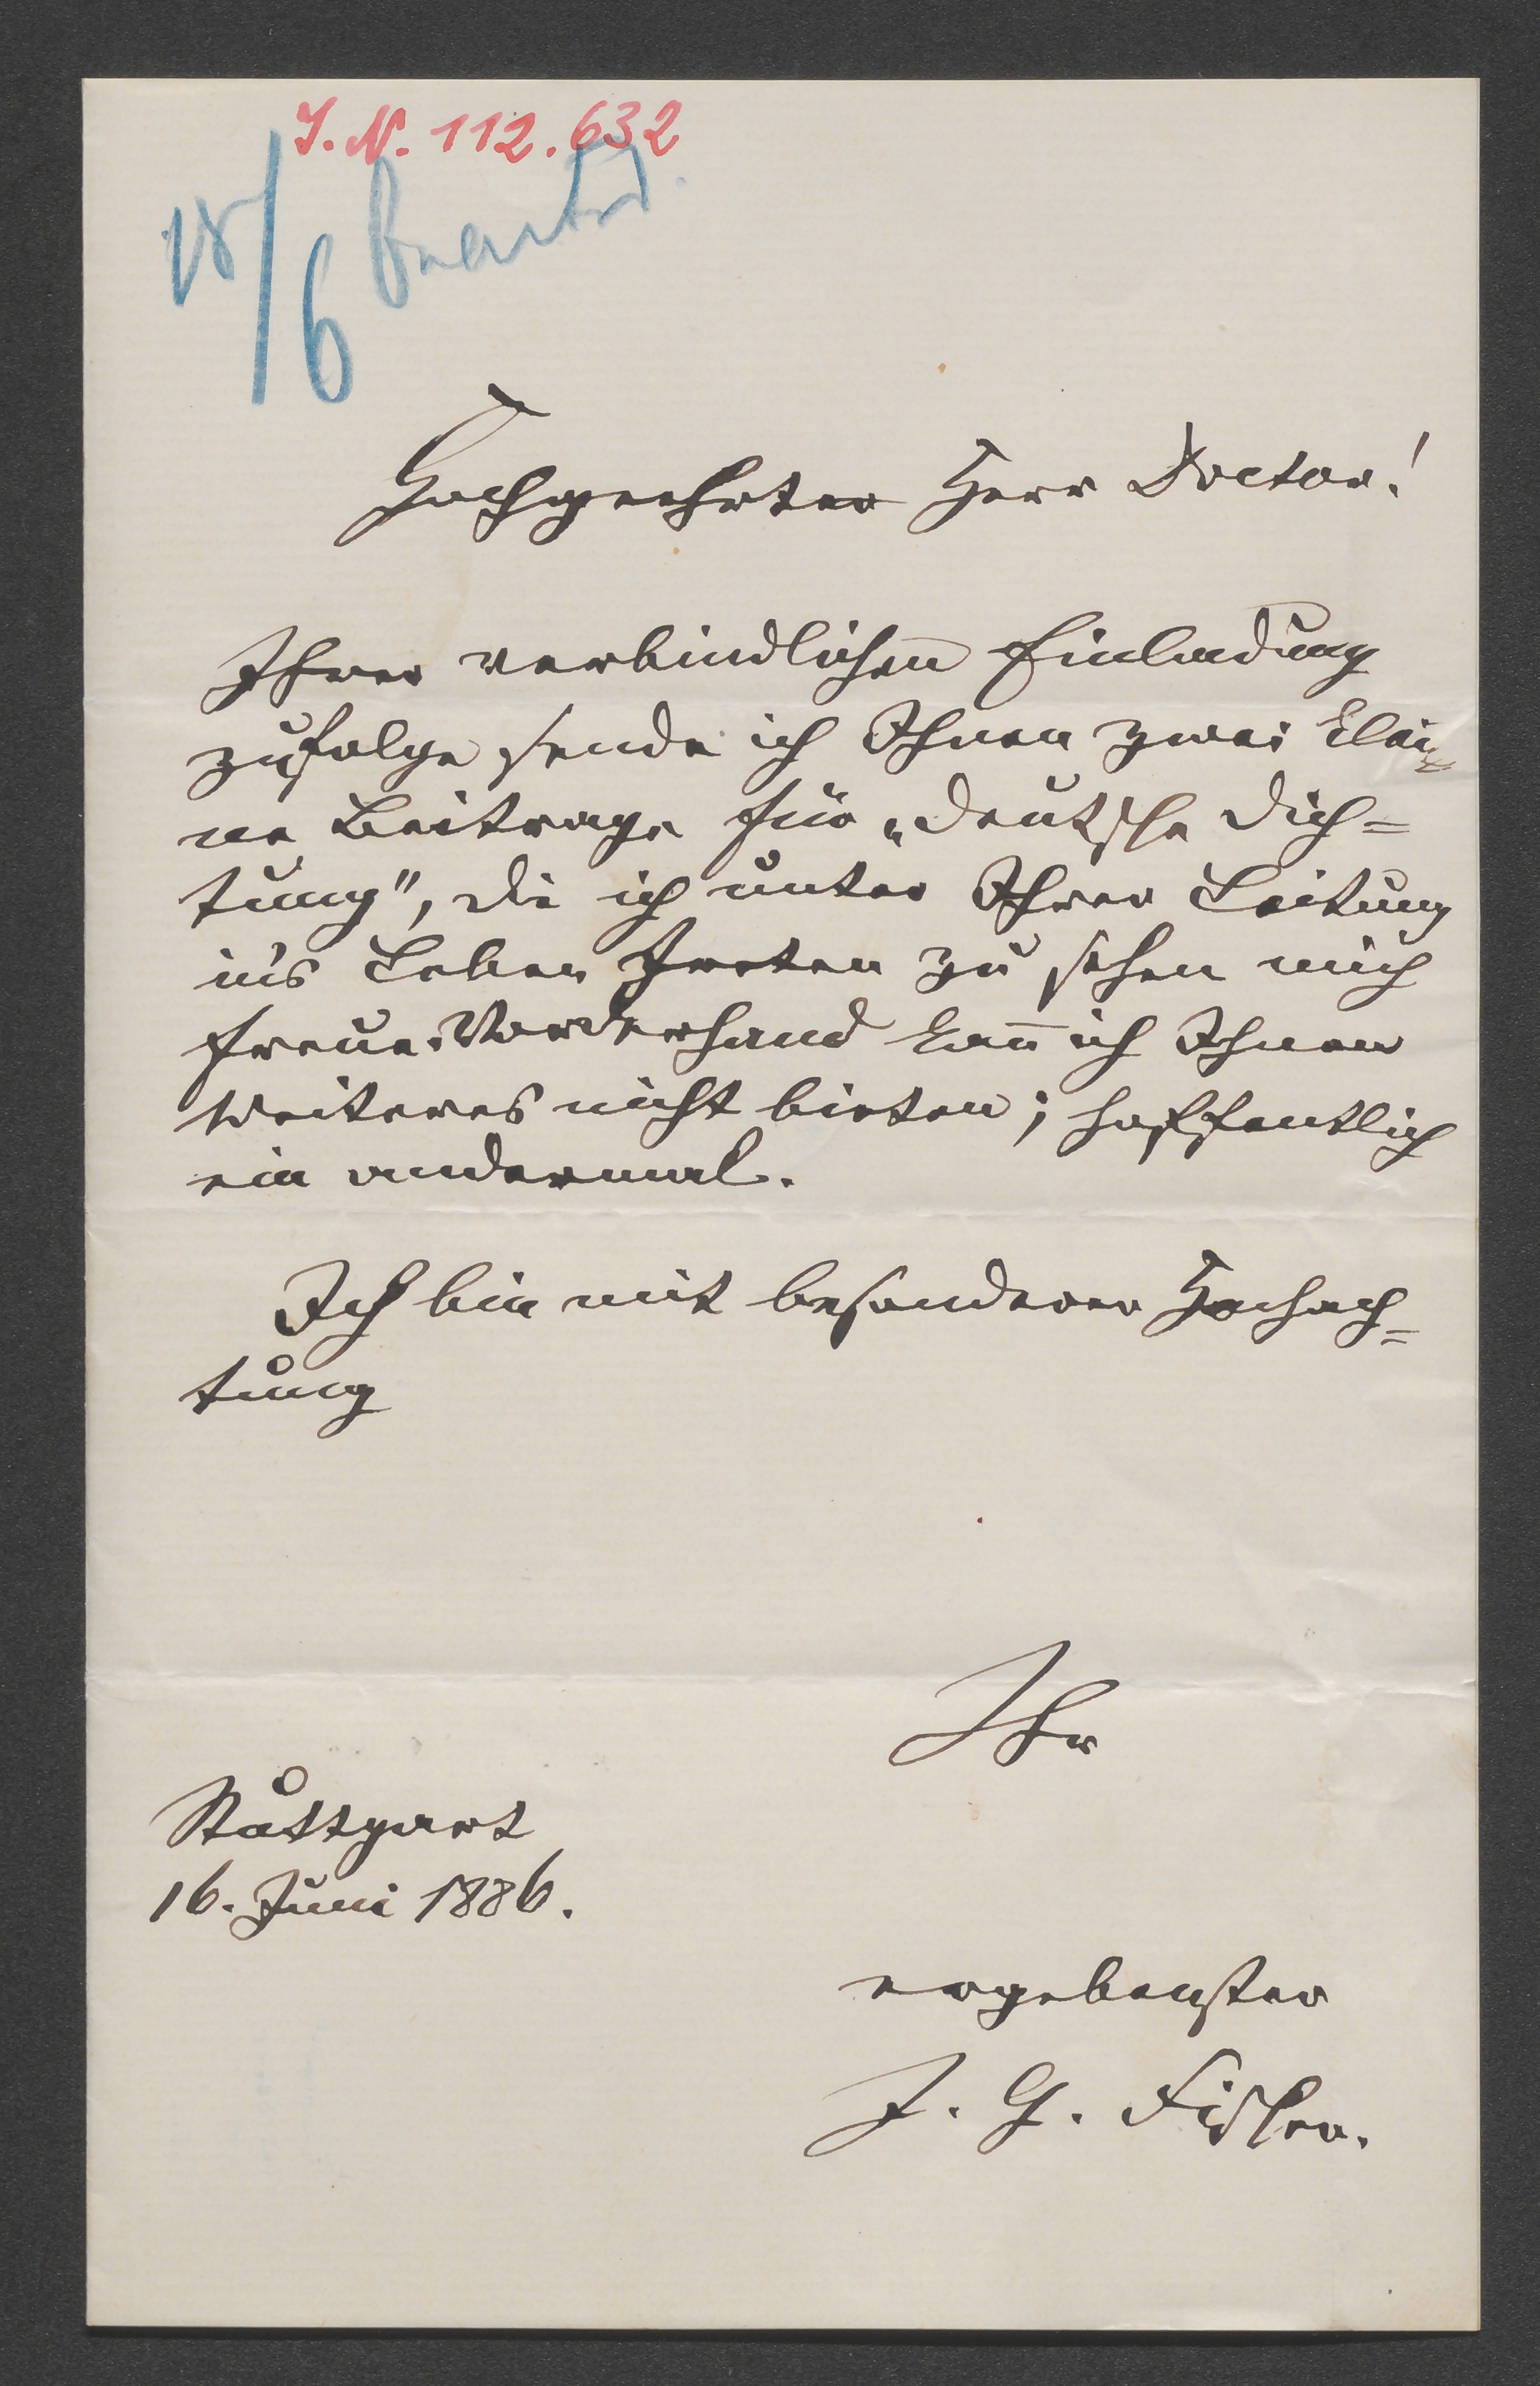 I. N. 112.632
18/6 beantw.
Hochgeehrter Herr Doctor!
Ihrer verbindlichen Einladung
zufolge sende ich Ihnen zwei klei=
ne Beitrage für „deutsche Dich=
tung", die ich unter Ihrer Leitung
in's Leben treten zu sehen mich
freue. Vorderhand kan̄ ich Ihnen
Weiteres nicht bieten; hoffentlich
ein andermal.
Ich bin mit besonderer Hochach=
tung
Ihr
Stuttgart
16. Juni 1886.
ergebenster
J. G. Fischer.